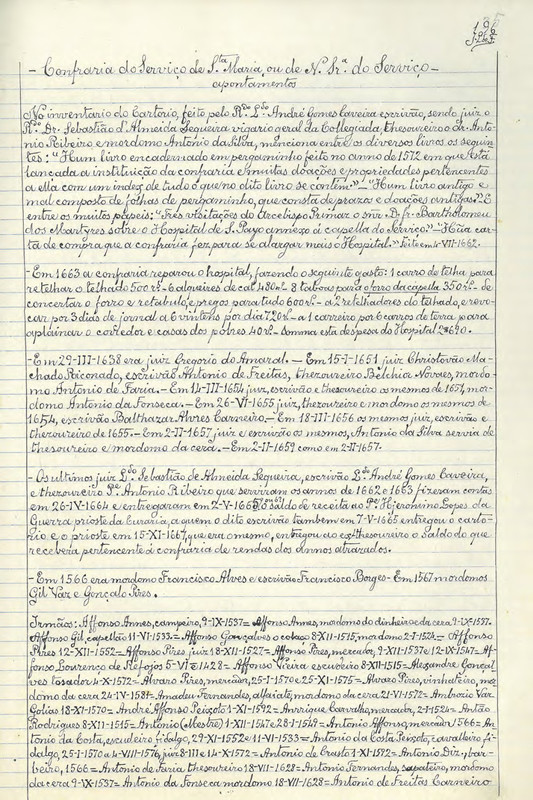 - Confraria do Serviço de S.ta Maria, ou de N. Sr.ª do Serviço -
apontamentos
No inventario do Cartorio, feito pelo R.do L.do André Gomes Caveira escrivão, sendo juiz o
R.do Dr. Sebastião d'Almeida Sequeira vigario geral da Collegiada, thesoureiro o dr. Anto-
nio Ribeiro e mordomo Antonio da Silva, menciona entre os diversos livros os seguin-
tes: "Hum livro encadernado em pergaminho feito no anno de 1572 em que está
lançada a instituição da confraria e muitas doações e propriedades pertencentes
a ella com um index de tudo o que no dito livro se contem." - "Hum livro antigo e
mal composto de folhas de pergaminho, que consta de prazos e doações antigas." E
entre os muitos papeis: "Tres visitações do Arcebispo Primaz o snr. D. fr. Bartholomeu
dos Martyres sobre o Hospital de S. Payo annexo á capella do Serviço." "Hũa car-
ta de compra que a confraria fez para se alargar mais o Hospital." Feito em 4-VII-1662.
- Em 1663 a confraria reparou o hospital, fazendo o seguinte gasto: 1 carro de telha para
retelhar o telhado 500 r.s - 6 alqueires de cal 480 r.s - 8 taboas para o forro da capella 350 r.s - de
concertar o forro e retabulo, e pregos para tudo 600 r.s - a 2 retelhadores do telhado, e revo-
car por 3 dias de jornal a 6 vintens por dia 720 r.s - a 1 carreiro por 6 carros de terra para
aplainar o corredor e casas dos pobres 40 r.s - Somma esta despesa do Hospital 2$690.
- Em 29-III-1638 era juiz Gregorio do Amaral. - Em 15-I-1651 juiz Christovão Ma-
chado Riconado, escrivão Antonio de Freitas, thesoureiro Belchior Novaes, mordo-
mo Antonio de Faria. - Em 14-III-1654 juiz, escrivão e thesoureiro os mesmos de 1651, mor-
domo Antonio da Fonseca. - Em 26-VI-1655 juiz, thesoureiro e mordomo os mesmos de
1654, escrivão Balthazar Alvres Carneiro. - Em 18-III-1656 os mesmos juiz, escrivão e
thesoureiro de 1655. - Em 2-II-1657 juiz e escrivão os mesmos, Antonio da Silva servia de
thesoureiro e mordomo da cera. - Em 2-II-1659 como em 2-II-1657.
- Os ultimos juiz L.do Sebastião de Almeida Sequeira, escrivão L.do André Gomes Caveira,
e thesoureiro P.e Antonio Ribeiro que serviram os annos de 1662 e 1663 fizeram contas
em 26-IV-1664 e entregaram em 2-V-1665 o saldo de receita ao P.e Hieronimo Lopes da
Guerra prioste da Curaria, a quem o dito escrivão tambem em 7-V-1665 entregou o carto-
rio e o prioste em 15-XI-1667, que era o mesmo, entregou ao thesoureiro o saldo do que
recebera pertencente á confraria de rendas dos annos atrazados.
- Em 1566 era mordomo Francisco Alves e escrivão Francisco Borges - Em 1567 mordomos
Gil Vaz e Gonçalo Pires.
Irmãos: Affonso Annes, campeiro, 9-IX-1537 = Affonso Annes, mordomo do dinheiro e da cera 9-IX-1537.
Affonso Gil, capellão 11-VI-1533 = Affonso Gonçalves o cobaço 8-XII-1515, mordomo 2-I-1524 = Affonso
Pires 12-XII-1552 = Affonso Pires, juiz 18-XII-1527 = Affonso Pires, mercador, 9-XII-1537 e 12-IX-1547 = Af-
fonso Lourenço de Refojos 5-VI-1428 = Affonso Vieira escudeiro 8-XII-1515 = Alexandre Gonçal-
ves tosador 4-X-1572 = Alvaro Pires, mercador, 25-I-1570 e 25-XI-1575 = Alvaro Pires, vinhateiro, mor-
domo da cera 24-IV-1581 = Amadeu Fernandes, alfaiate, mordomo da cera 21-VI-1572 = Ambrozio Vaz
Golias 18-XI-1570 = André Affonso Peixoto 1-XI-1592 = Anrrique Carvalho, mercador, 2-I-1524 = Antão
Rodrigues 8-XII-1515 = Antonio (Mestre) 1-XII-1547 e 28-I-1549 = Antonio Affonso, mercador 1566 = An-
tonio da Costa, escudeiro fidalgo, 29-XI-1552 e 11-VI-1533 = Antonio da Costa Peixoto, cavalleiro fi-
dalgo, 25-I-1570 a 4-VIII-1576, juiz 8-III e 14-X-1572 = Antonio de Crasto 1-XI-1592 = Antonio Diz, bar-
beiro, 1566 = Antonio de Faria thesoureiro 18-VII-1628 = Antonio Fernandes, sapateiro, mordomo
da cera 9-IX-1537 = Antonio da Fonseca mordomo 18-VII-1628 = Antonio de Freitas Carneiro